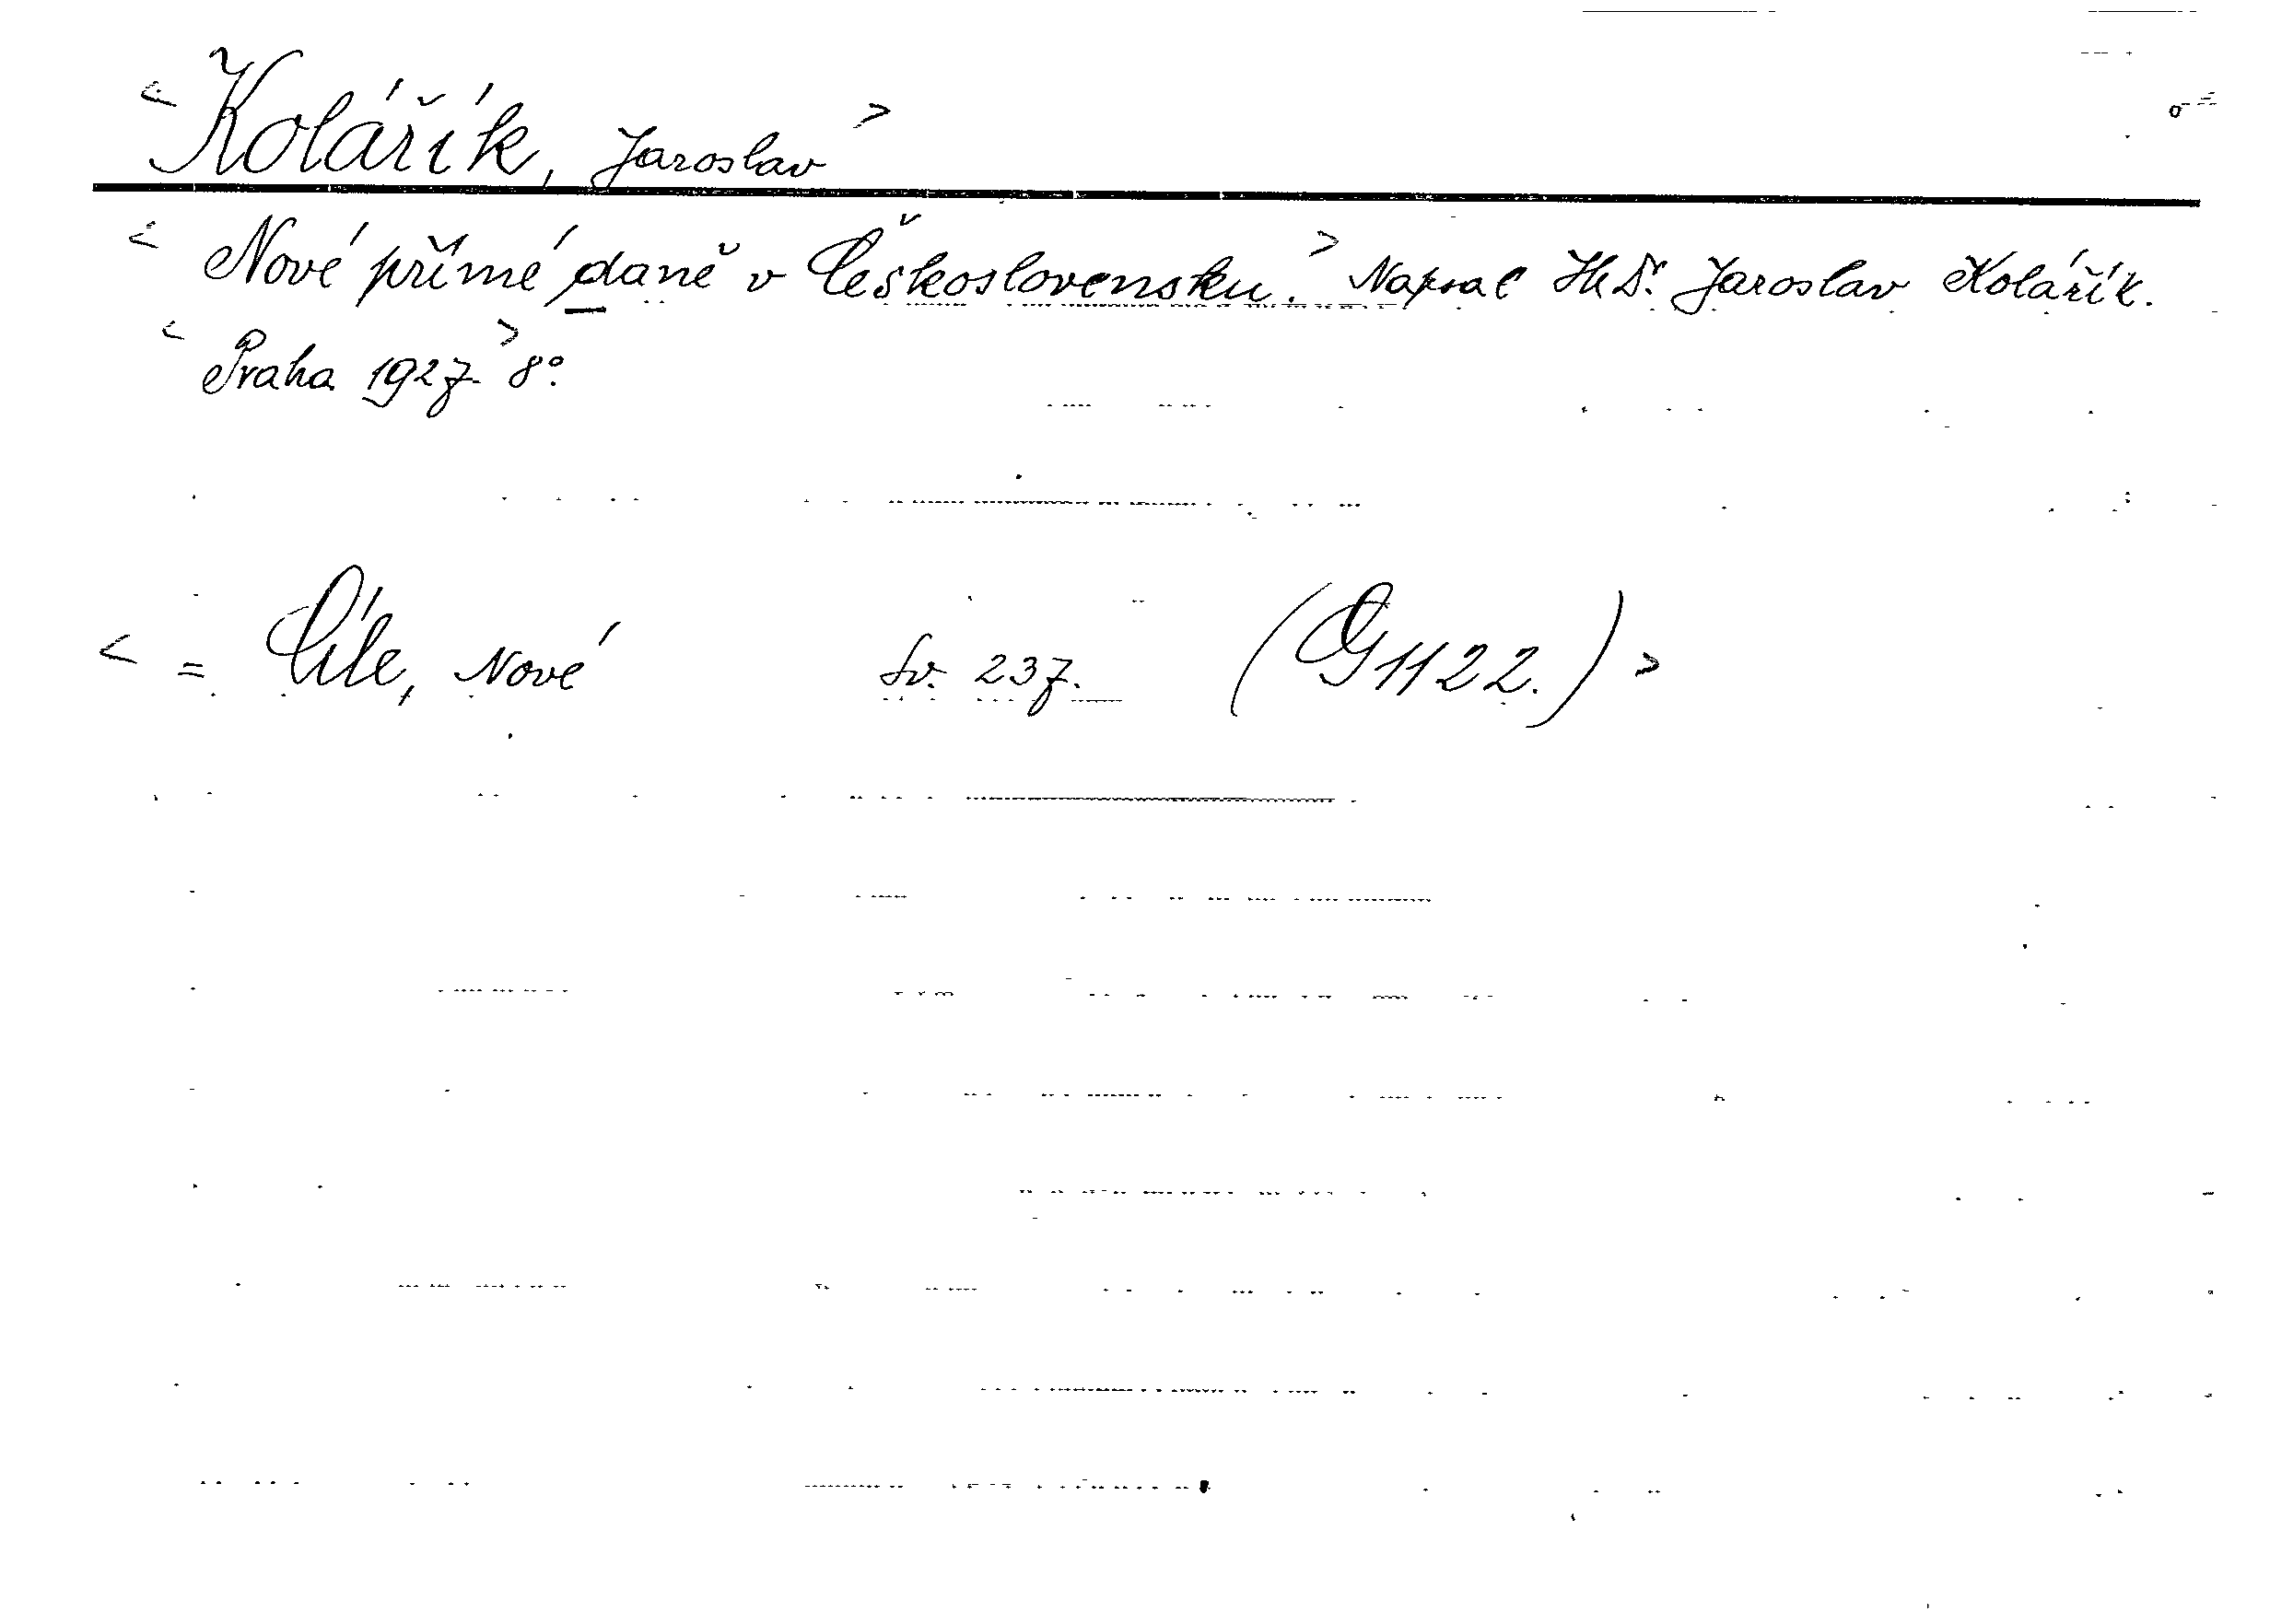 < Kolářík, Jaroslav >
< Nové přímé daně v Československu. > Napsal JUDr. Jaroslav Kolářík.
< Praha 1927. > 8°.
< = Cíle, Nové Sv. 237. (G 1122.) >